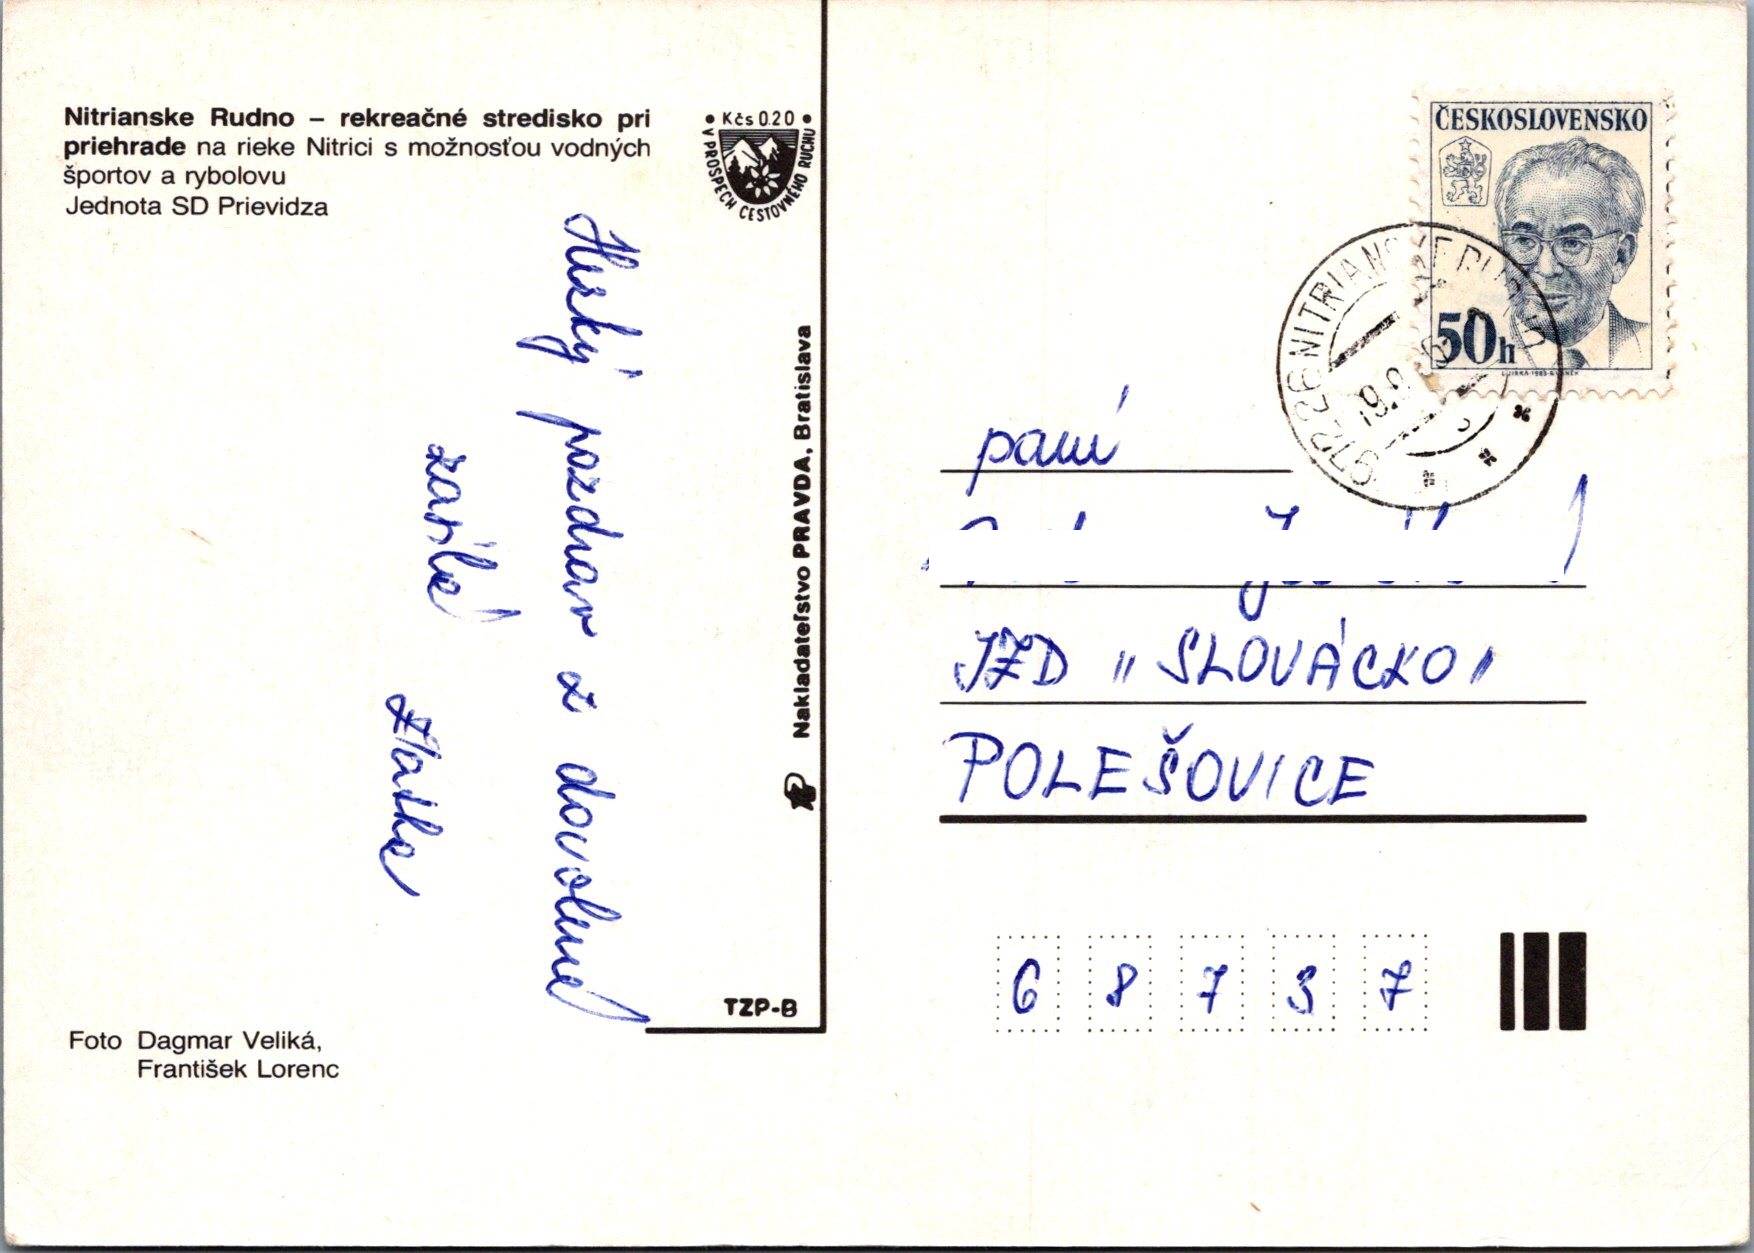 Nitrianske Rudno – rekreačné stredisko pri
priehrade na rieke Nitrici s možnosťou vodných
športov a rybolovu
Jednota SD Prievidza
Kčs 0.20
V PROSPECH CESTOVNÉHO RUCHU
Hezký pozdrav z dovolené
zasílá
Zlatka
Nakladateľstvo PRAVDA, Bratislava
TZP-B
Foto Dagmar Veliká,
František Lorenc
ČESKOSLOVENSKO
50h
972 26 NITRIANSKE RUDNO
paní
JZD „SLOVÁCKO"
POLEŠOVICE
68737